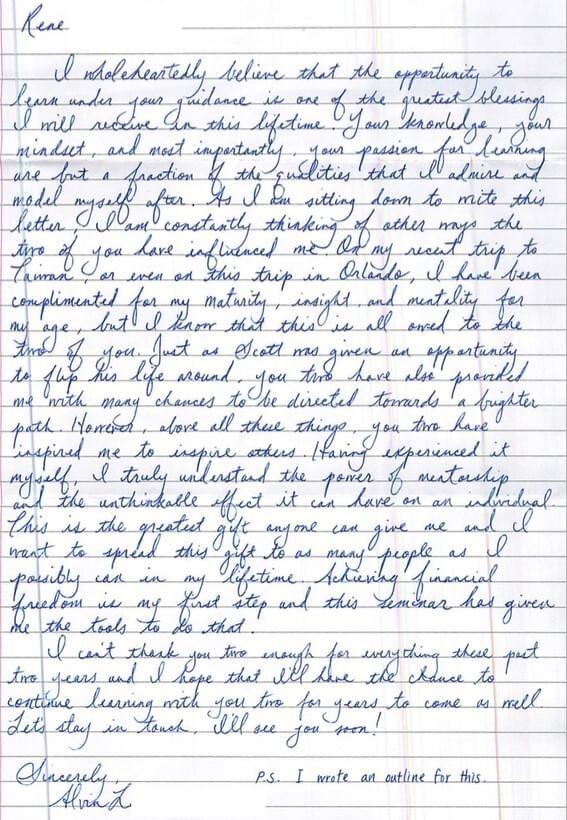 Rene
I wholeheartedly believe that the opportunity to
learn under your guidance is one of the greatest blessings
I will receive in this lifetime. Your knowledge, your
mindset, and most importantly, your passion for learning
are but a fraction of the qualities that I admire and
model myself after. As I am sitting down to write this
letter, I am constantly thinking of other ways the
two of you have influenced me. On my recent trip to
Taiwan, or even on this trip in Orlando, I have been
complimented for my maturity, insight, and mentality for
my age, but I know that this is all owed to the
two of you. Just as Scott was given an opportunity
to flip his life around, you two have also provided
me with many chances to be directed towards a brighter
path. However, above all these things, you two have
inspired me to inspire others. Having experienced it
myself, I truly understand the power of mentorship
and the unthinkable effect it can have on an individual.
This is the greatest gift anyone can give me and I
want to spread this gift to as many people as I
possibly can in my lifetime. Achieving financial
freedom is my first step and this seminar has given
me the tools to do that.
I can't thank you two enough for everything these past
two years and I hope that I'll have the chance to
continue learning with you two for years to come as well.
Let's stay in touch, I'll see you soon!
Sincerely,
P.S. I wrote an outline for this.
Alvin L